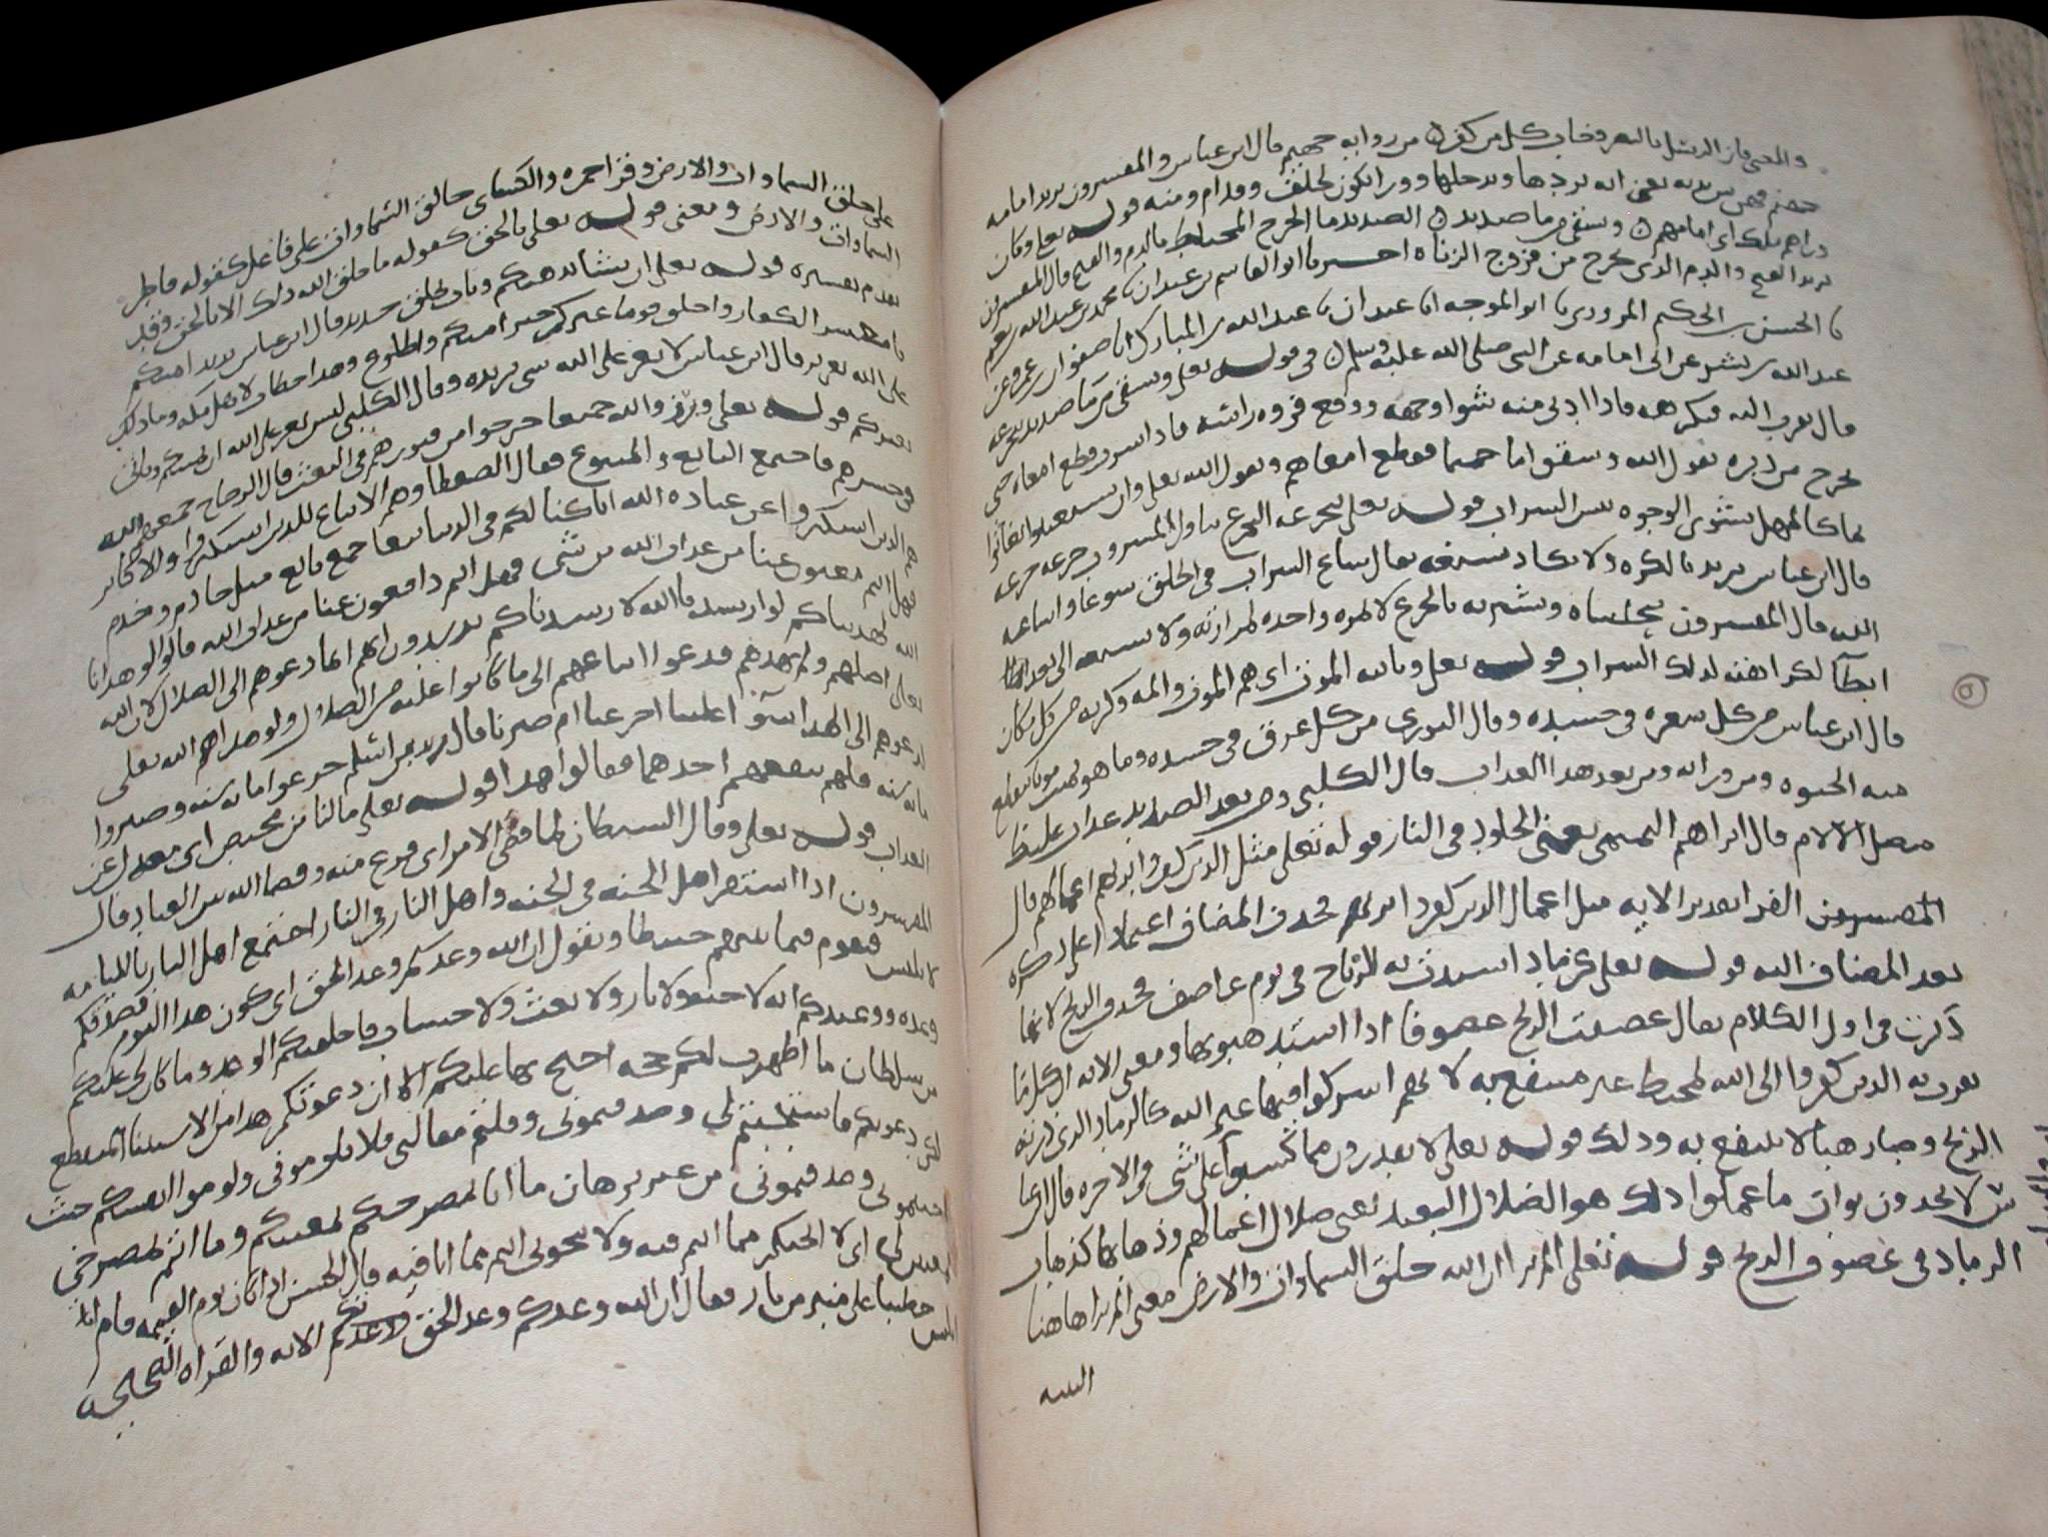 والمعنى فاز الرسل بالنصر وخاب كل من كفر من ورايه جهنم قال ابن عباس والمفسرون يريد امامه
جهنم فهو يريد يعني انه يردها ويدخلها وورا تكون لخلف وقدام ومنه قوله تعلى وكان
وراهم ملك اى امامهم ويسقى من ما صديد الصديد ما الجرح المختلط بالدم والقيح قال المفسرون
يريد القيح والدم الذى يخرج من فروج الزناه اخبرنا ابو القاسم بن عبدان نا محمد بن عبد الله بن
نا الحسن بن الحكم المروزى نا ابو الموجه انا عبدان نا عبد الله بن المبارك انا صفوان بن عمرو عن
عبد الله بن بشر عن ابى امامه عن النبى صلى الله عليه وسلم فى قوله تعلى ويسقى من ما صديد يتجرعه
قال يقرب اليه فيكرهه فاذا ادنى منه شوا وجهه ووقع فروه راسه فاذا شربه قطع امعاه حتى
يخرج من دبره يقول الله وسقوا ما حميما فقطع امعاهم ويقول الله تعلى وان يستغيثوا يغاثوا
بما كالمهل يشوى الوجوه بيس الشراب قوله تعلى يتجرعه التجرع تناول المشروب جرعه جرعه
قال ابن عباس يريد بالكره ولا يكاد يسيغه يقال ساغ الشراب فى الحلق سوغا واساغه
الله قال المفسرون يتحساه ويشربه بالجرع لا بمره واحده لمرارته ولا يسيغه الا بعد
ابطآ لكراهته لذلك الشراب قوله تعلى وياتيه الموت اى هم الموت والمه وكربه من كل مكان
قال ابن عباس من كل شعره فى جسده وقال الثورى من كل عرق فى جسده وما هو بميت موتا ينقطع
معه الحيوه ومن ورايه ومن بعد هذا العذاب قال الكلبى ومن بعد الصديد عذاب غليظ
متصل الآلام قال ابراهيم التيمى يعنى الخلود فى النار قوله تعلى مثل الذين كفروا بربهم اعمالهم قال
المفسرون الفرا تقدير الايه مثل اعمال الذين كفروا بربهم فحذف المضاف اعتمادا على ذكره
بعد المضاف اليه قوله تعلى كرماد اشتدت به الرياح فى يوم عاصف فحذف الريح لانها
ذكرت فى اول الكلام يقال عصفت الريح عصوفا اذا اشتد هبوبها ومعنى الايه ان كل ما
تقرب به الذين كفروا الى الله لمحبط غير منتفع به لانهم اشركوا فيها غير الله كالرماد الذى ذرته
الريح وصار هبا لا ينتفع به وذلك قوله تعلى لا يقدرون مما كسبوا على شى فى الاخره قال ابن عبا
س لا يجدون ثواب ما عملوا ذلك هو الضلال البعيد يعنى ضلال اعمالهم وذهابها كذهاب
الرماد فى عصوف الريح قوله تعلى الم تر ان الله خلق السماوات والارض معنى الم تر هاهنا
على خلق السماوات والارض وقرا حمزه والكساى خالق السماوات على فاعل كقوله فاطر
السماوات والارض ومعنى قوله تعلى بالحق كقوله ما خلق الله ذلك الا بالحق وقد
تقدم تفسيره قوله تعلى ان يشا يذهبكم ويات بخلق جديد قال ابن عباس يريد اميتكم
يا معشر الكفار واخلق قوما غيركم خيرا منكم واطوع وهذا خطاب لاهل مكه وما ذلك
على الله بعزيز قال ابن عباس لا يعز على الله شى يريده وقال الكلبى ليس يعز على الله ان يميتكم وياتى
بغيركم قوله تعلى وبرزوا لله جميعا خرجوا من قبورهم فى البعث قال الزجاج جمعهم الله
فى حشرهم فاجتمع التابع والمتبوع فقال الضعفا وهم الاتباع للذين استكبروا والاكابر
هم الذين استكبروا عن عباده الله انا كنا لكم فى الدنيا تبعا جمع تابع مثل خادم وخدم
فهل انتم مغنون عنا من عذاب الله من شى فهل انتم دافعون عنا من عذاب الله قالوا لو هدانا
الله لهديناكم لو ارشدنا الله لارشدناكم يريدون انهم انما دعوهم الى الضلال لان الله
تعالى اضلهم ولم يهدهم فدعوا اتباعهم الى ما كانوا عليه من الضلال ولو هداهم الله تعلى
لدعوهم الى الهدا سوآ علينا اجزعنا ام صبرنا قال زيد بن اسلم جزعوا مايه سنه وصبروا
مايه سنه فلم ينفعهم احدهما فقالوا هذا قوله تعلى ما لنا من محيص اى معدل عن
العذاب قوله تعلى وقال الشيطان لما قضى الامر اى فرغ منه وقضا الله بين العباد قال
المفسرون اذا استقر اهل الجنه فى الجنه واهل النار فى النار اجتمع اهل النار باللايمه
لابليس فيقوم فيما بينهم خطيبا ويقول ان الله وعدكم وعد الحق اى كون هذا اليوم فصدقكم
وعده ووعدتكم انه لا جنه ولا نار ولا بعث ولا حساب فاخلفتكم الوعد وما كان لى عليكم
من سلطان ما اظهرت لكم حجه احتج بها عليكم الا ان دعوتكم هذا من الاستثنا المنقطع
لكن دعوتكم فاستجبتم لى وصدقتمونى وقبلتم مقالتى فلا تلومونى ولوموا انفسكم حيث
اجبتمونى وصدقتمونى من غير برهان ما انا بمصرخكم بمغيثكم وما انتم بمصرخى
بمغيثى لى اى لا انجيكم مما انتم فيه ولا تنجونى انتم مما انا فيه قال الحسن اذا كان يوم القيمه قام
ابليس خطيبا على منبر من نار فقال ان الله وعدكم وعد الحق ووعدتكم الايه والقراه الصحيحه